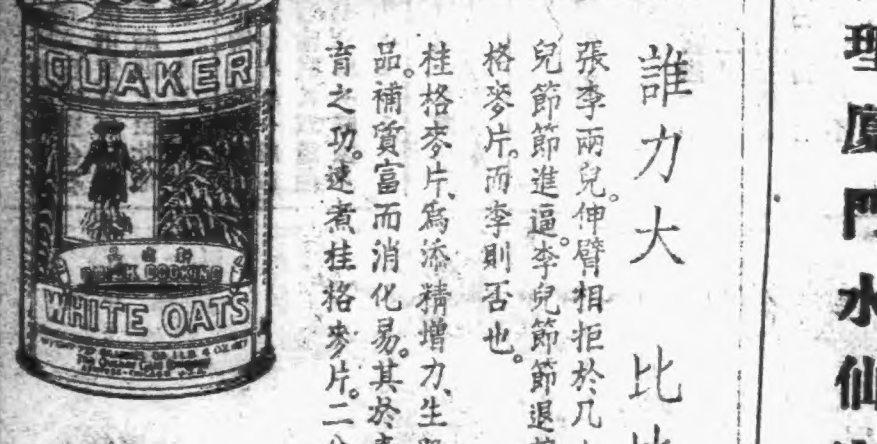 理厦門水仙
誰力大 比
張李兩兒。伸臂相拒於几
兒節節進逼。李兒節節退
格麥片。而李則否也。
桂格麥片、爲添精增力、生
品。補質富而消化易。其於
育之功。速煮桂格麥片。二
QUAKER
QUICK COOKING
WHITE OATS